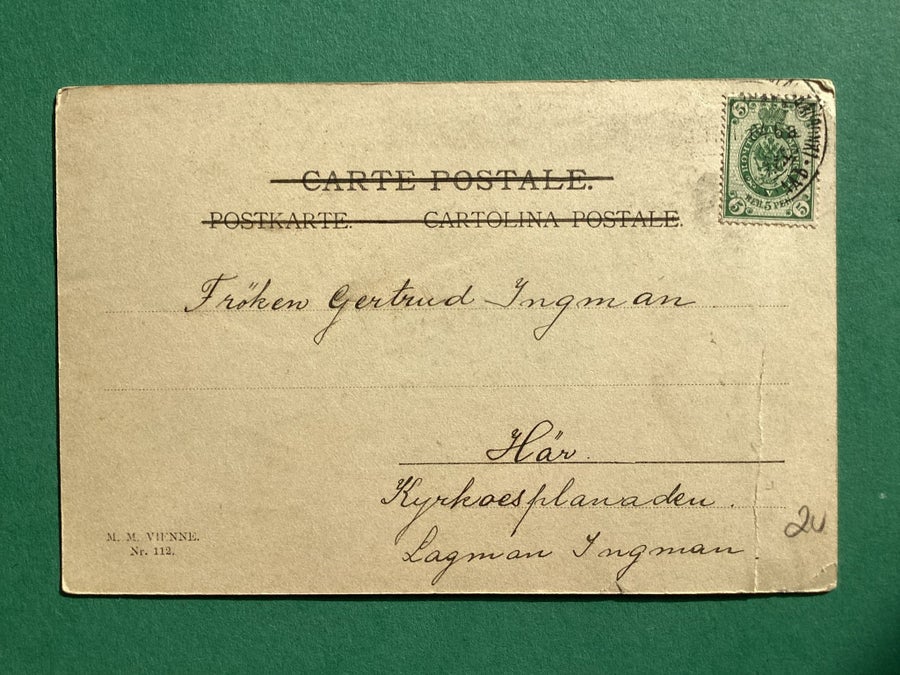 CARTE POSTALE.
POSTKARTE. CARTOLINA POSTALE.
5 5
PEN. 5 PEN.
5 5
Fröken Gertrud Ingman
Här.
Kyrkoesplanaden.
Lagman Ingman.
M. M. VIENNE.
Nr. 112.